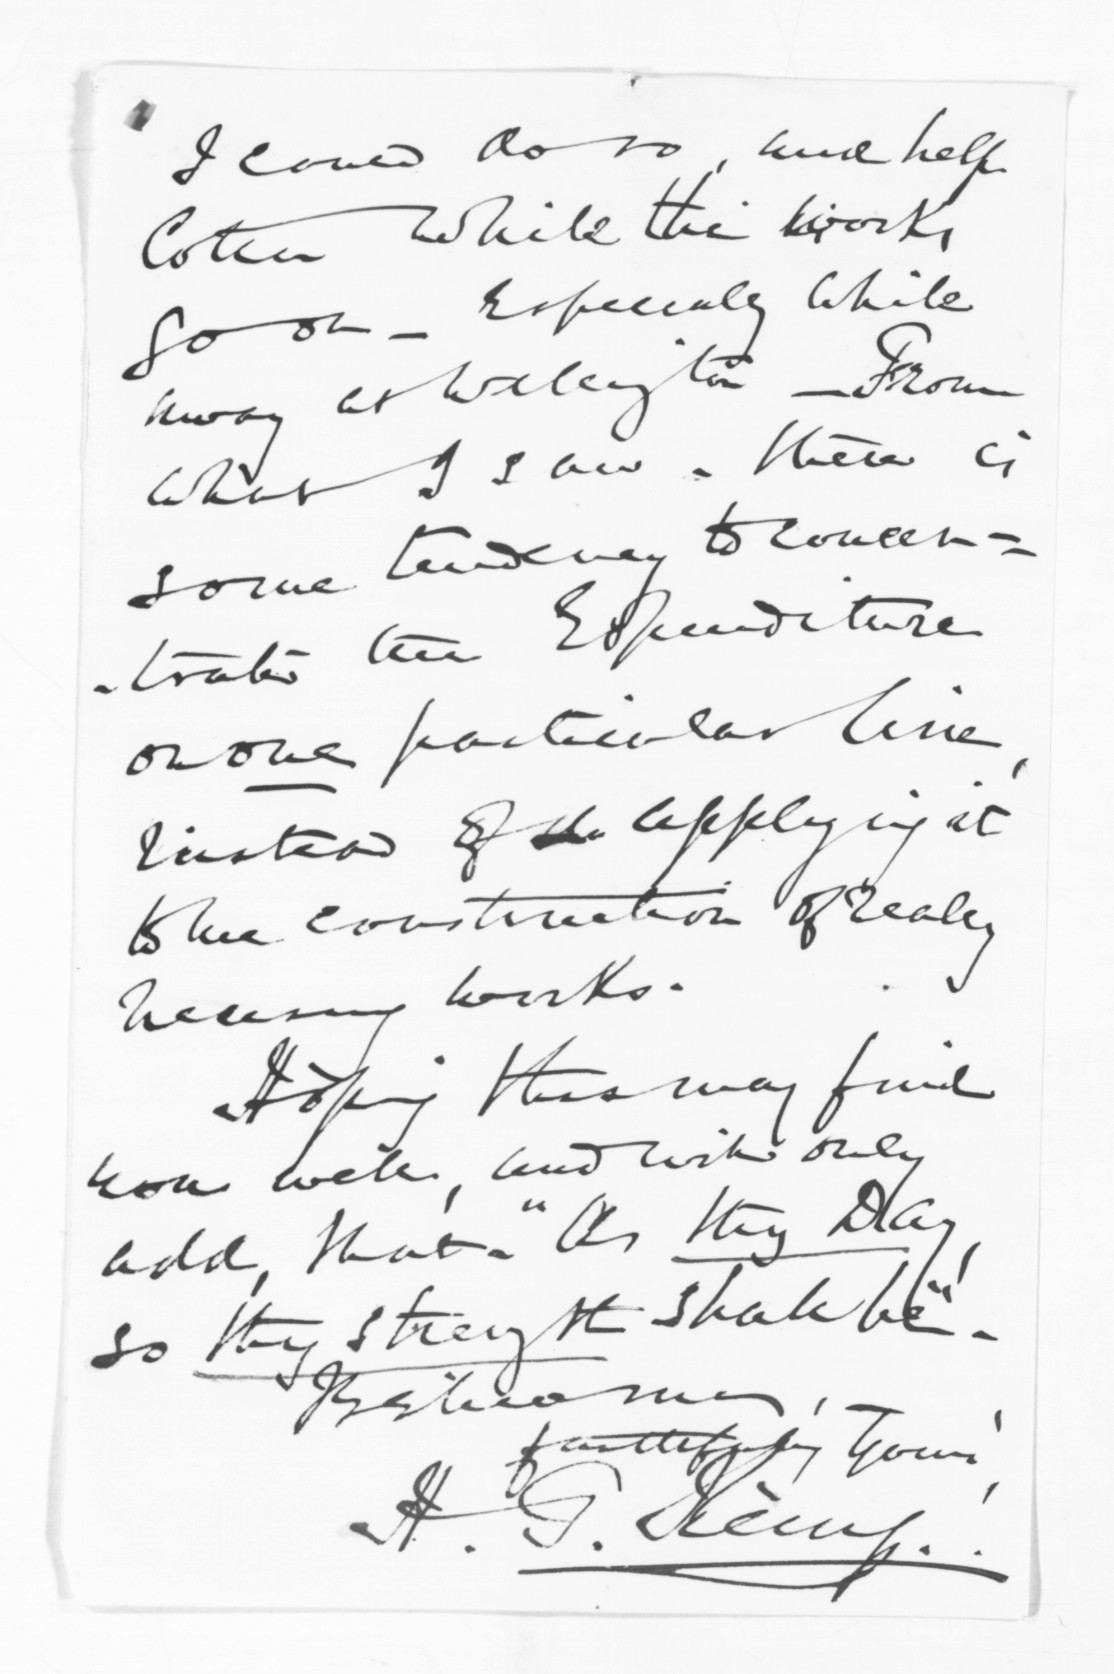 I could do so, and help
Cotter while the works
go on - Especially while
away at Wellington - From
what I saw - there is
some tendency to concen=
-trate the Expenditure
on one particular line,
instead of applying it
to the construction of really
necessary works.
Hoping this may find
you well, and will only
add, that - "As thy Day,
so thy strength shall be" -
Believe me,
faithfully Yours,
H. T.